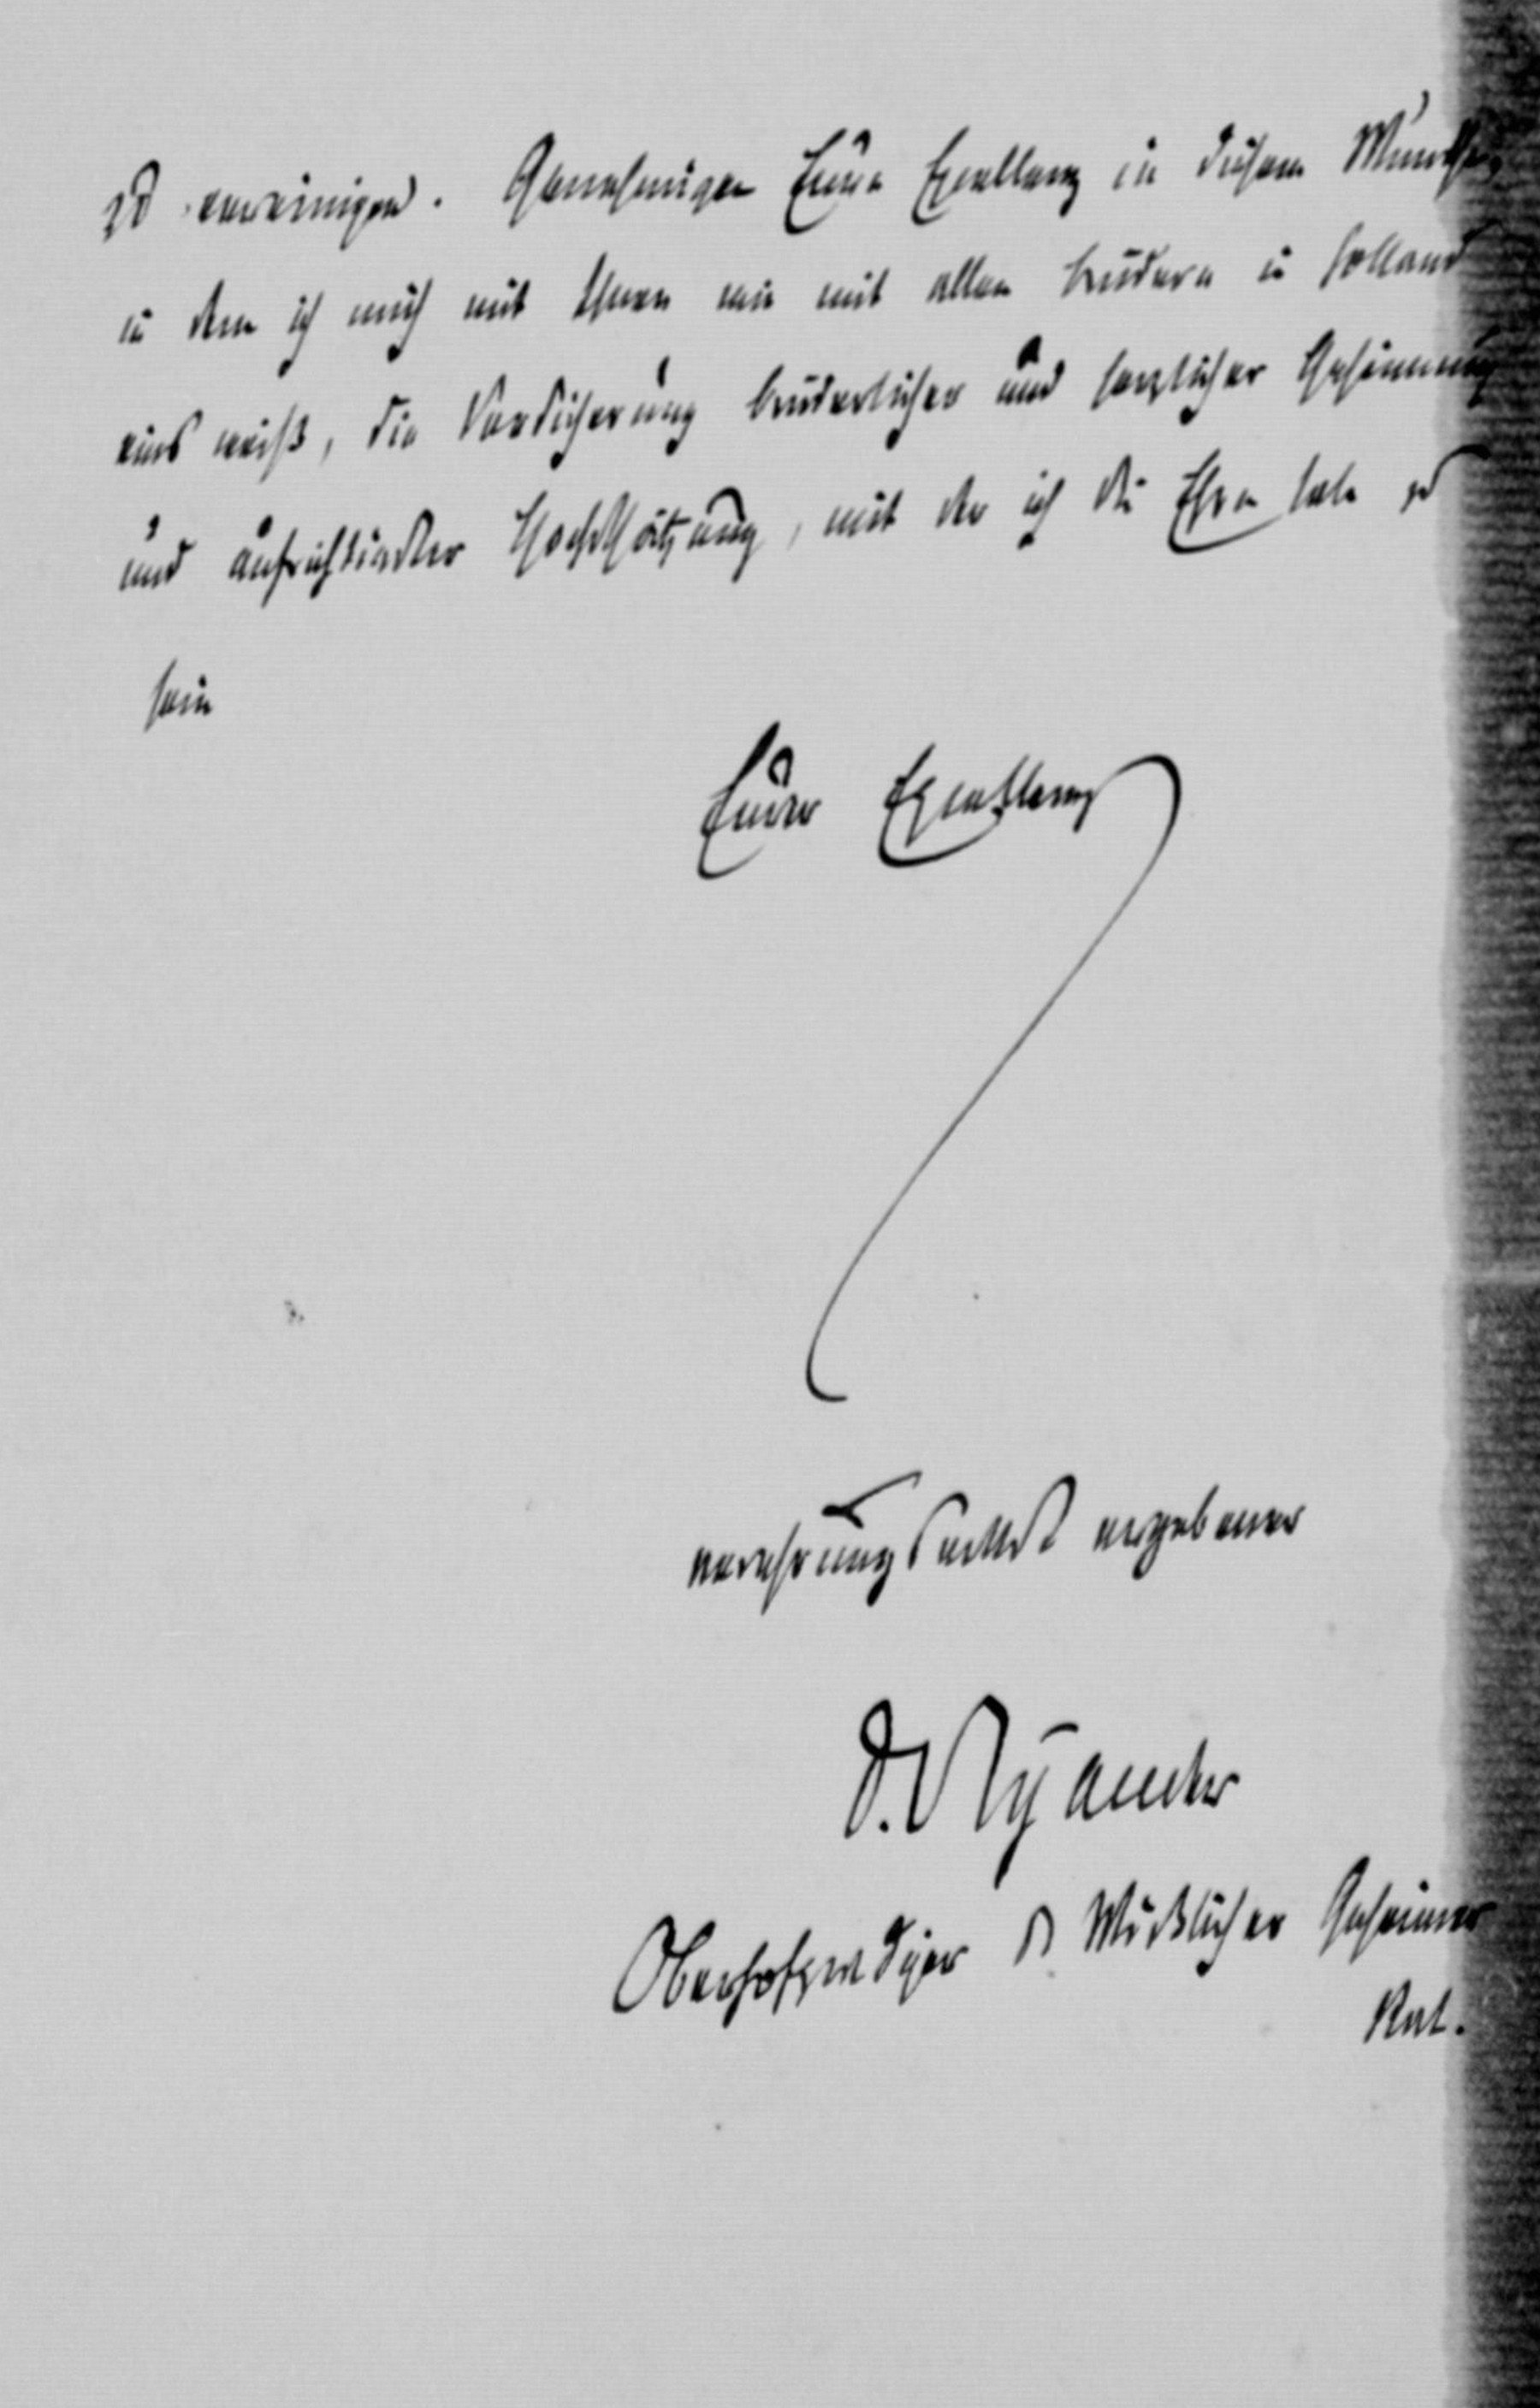 zu vereinigen. Genehmigen Eure Exzellenz in diesem Wunsche,
in dem ich mich mit Ihnen wie mit allen Brüdern in Holland
eins weiß, die Versicherung brüderlicher und herzlicher Gesinnung
und aufrichtigster Hochschätzung, mit der ich die Ehre habe zu
sein
Eurer Exzellenz
verehrungsvollst ergebener
D. Dryander
Oberhofprediger u Wirklicher Geheimer
Rat.